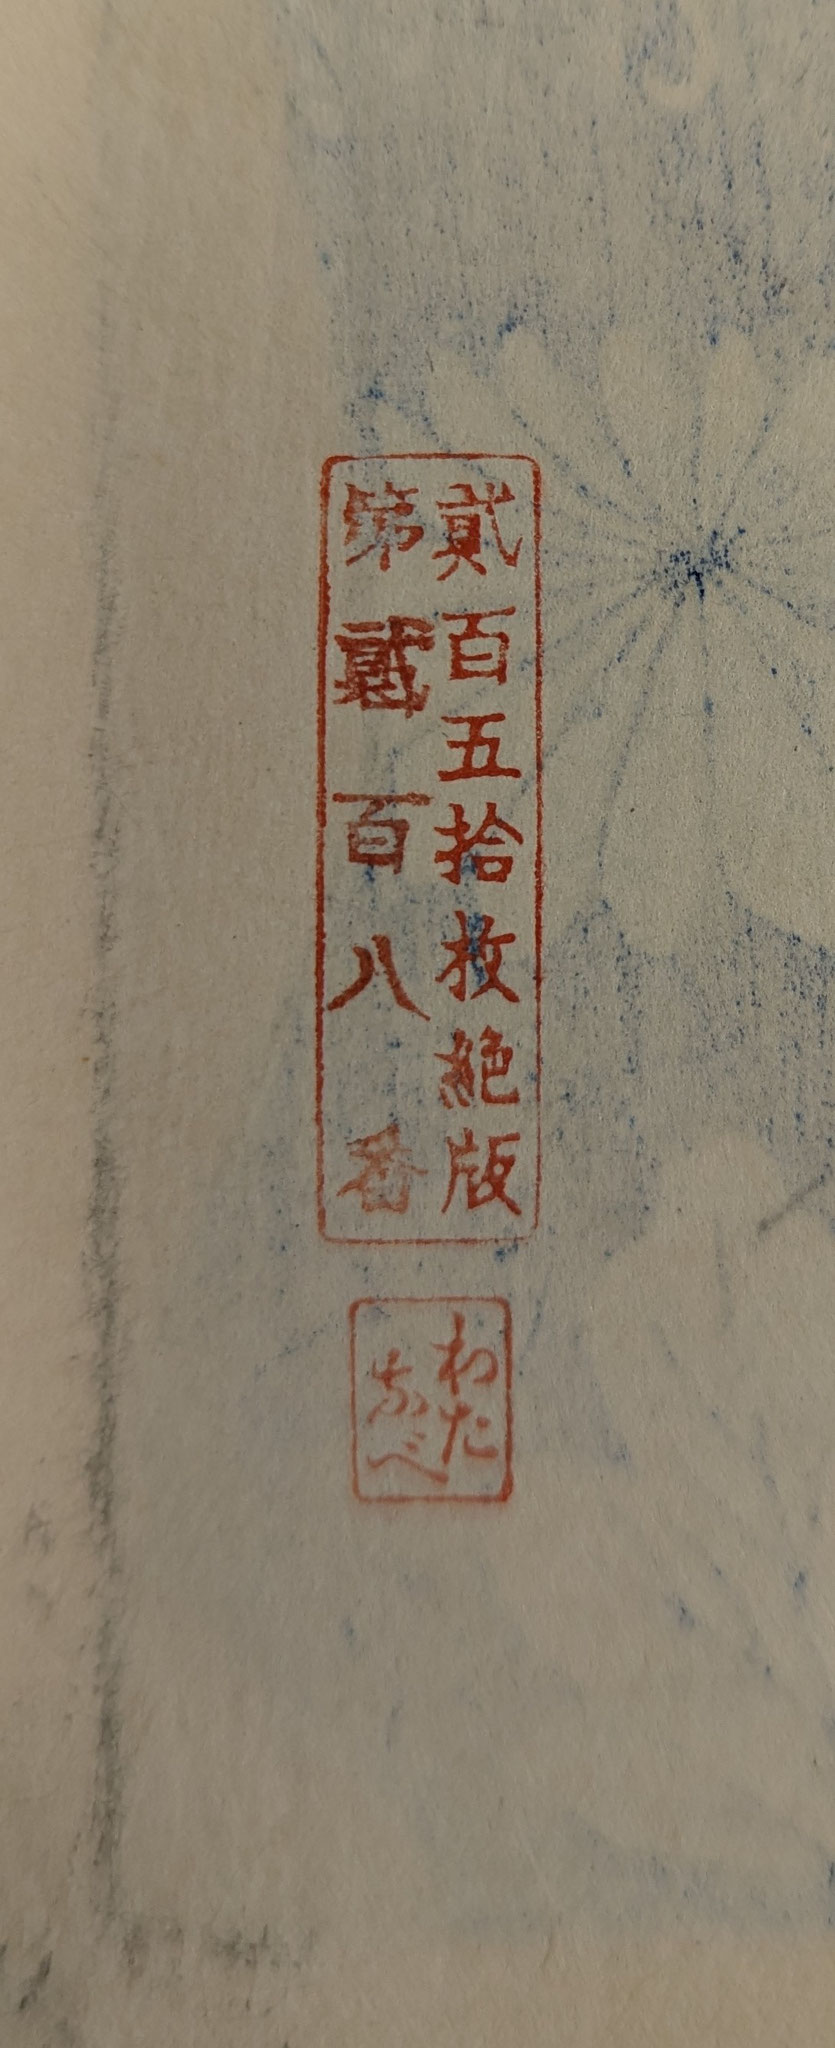 貮百五拾枚絶版
第貮百八番
わた
なべ